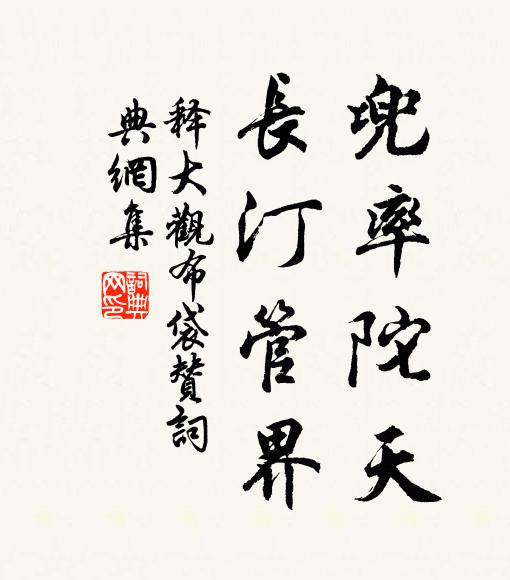 兜率陀天
長汀管界
释大觀布袋贊詞
典網集
詞典
网印